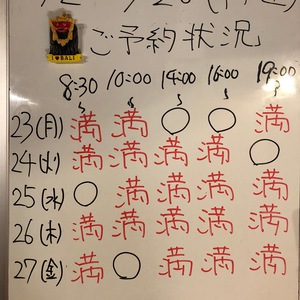 ご予約状況
I ♥ BALI
8:30 10:00 14:00 16:00 19:00
23(月) 満 満 ○ ○ 満
24(火) 満 満 満 満 ○
25(水) ○ 満 満 満 満
26(木) 満 満 満 満 満
27(金) 満 ○ 満 満 満